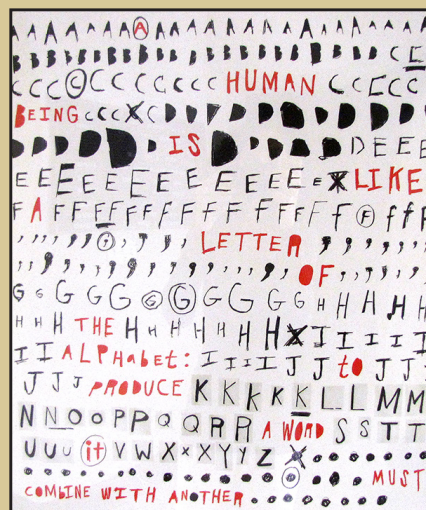 A A A A A A A A A A A A A A A A A A A A A A A A A
B B B B B B B B B B B B B B B B B B B B C C
C C C C C C C C C C HUMAN C C C C C
BEING C C C X C D D D D D D D D D D
D D D D D D IS D D D D D D D E E E
E E E E E E E E E E E E E X LIKE
F A F F F F F F F F F F F F F F f f F
, , , , , , , , , , , LETTER , , , , , , ,
, , , , , , , , , , , , , , , , , OF , , , , , ,
G G G G G G G G G G G H H H H H
H H H THE H H H H H H H X I I I I I
I I ALPHabet: I I I I J J to J J J
J J J PRODUCE K K K K K L L M M
N N O O P P Q Q R R A WORD S S T T
U U U it V W X X X Y Y Z X . . . . . . .
. . . . . . . . . . . . . . . . . . MUST
COMBINE WITH ANOTHER . . . . . . . .